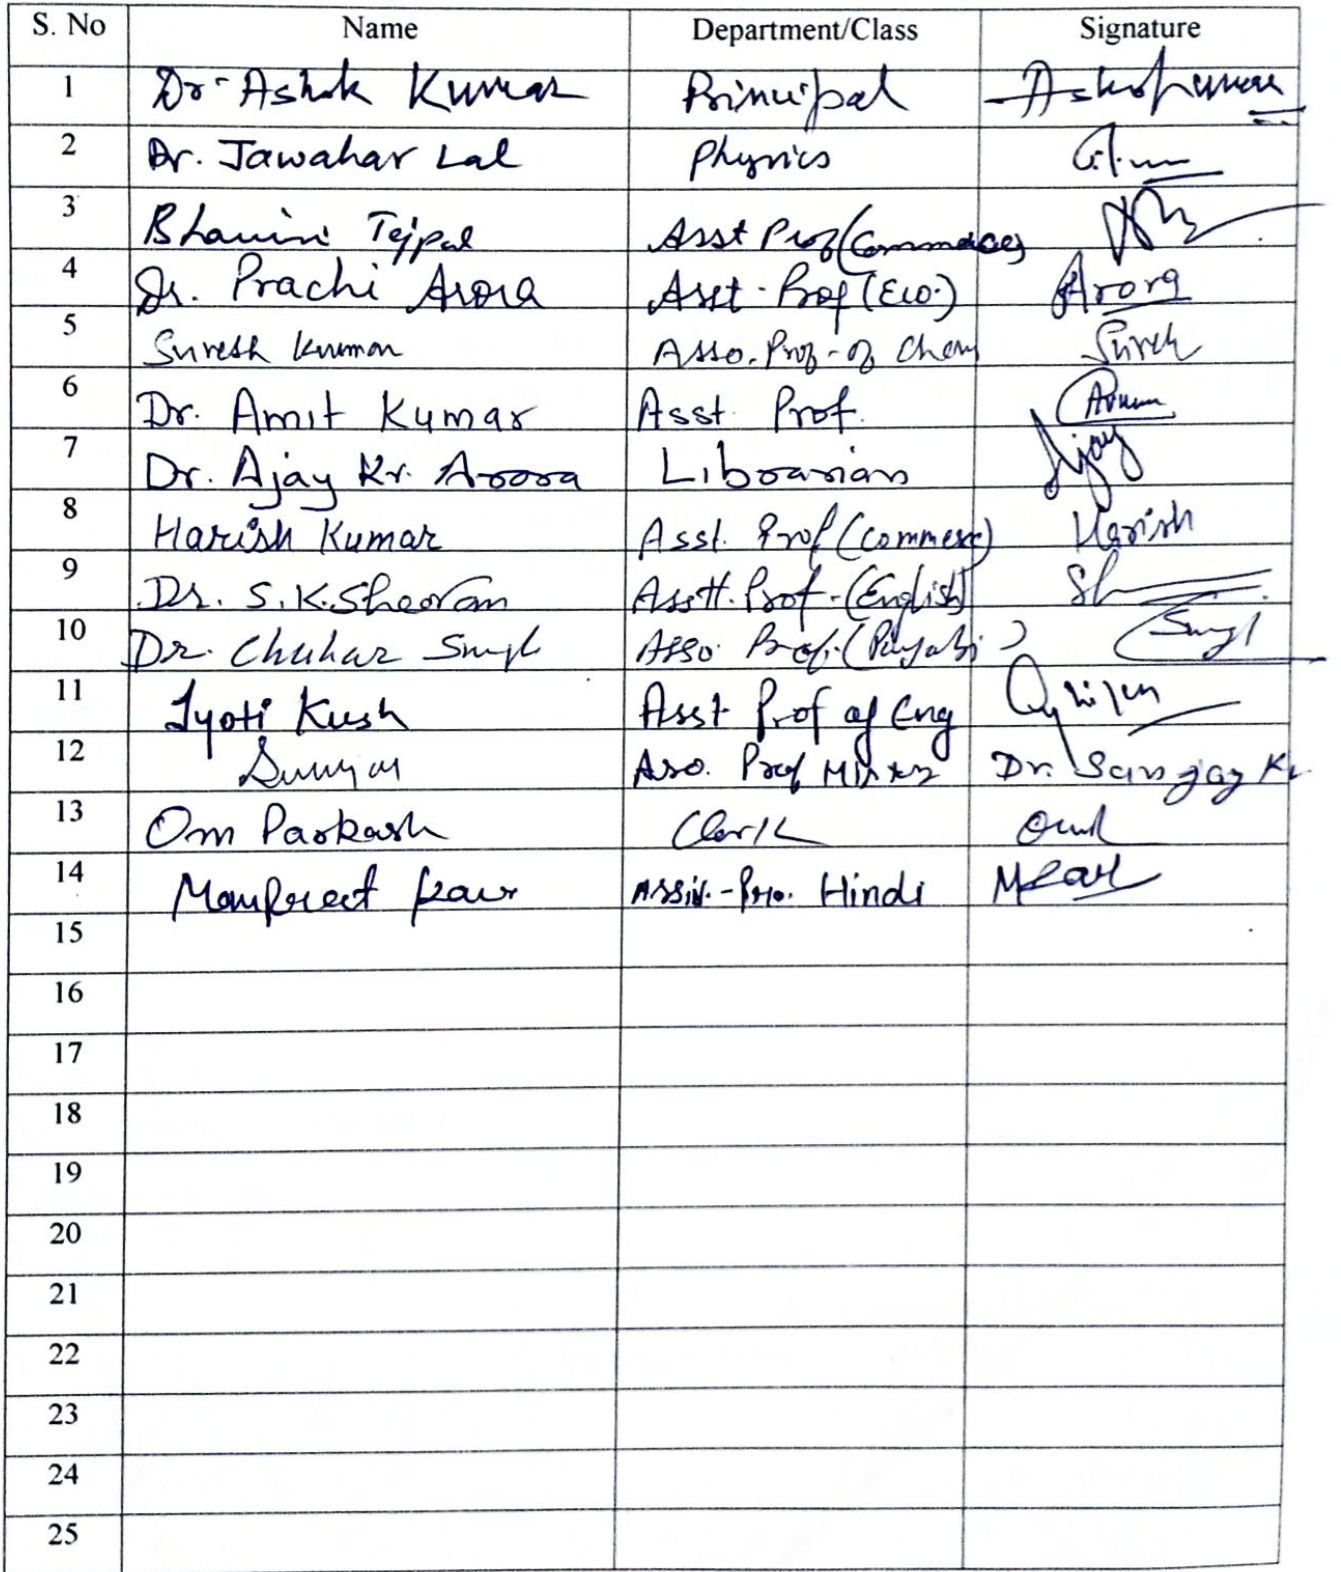 S. No Name Department/Class Signature
1 Dr. Ashok Kumar Principal Ashok Kumar
2 Dr. Jawahar Lal Physics
3 Bhawini Tejpal Asst Prof (Commerce)
4 Dr. Prachi Arora Asst. Prof (Eco.) Arora
5 Suresh Kumar Asso. Prof. of Chem Suresh
6 Dr. Amit Kumar Asst. Prof.
7 Dr. Ajay Kr. Arora Librarian Ajay
8 Harish Kumar Asst. Prof (Commerce) Harish
9 Dr. S.K. Sheoran Asstt. Prof. (English)
10 Dr. Chuhar Singh Asso. Prof. (Punjabi) Singh
11 Jyoti Kush Asst Prof of Eng
12 Aso. Prof Dr. Sanjay Kr
13 Om Parkash Clerk
14 Manpreet Kaur Assit.-Pro. Hindi MKaur
15
16
17
18
19
20
21
22
23
24
25